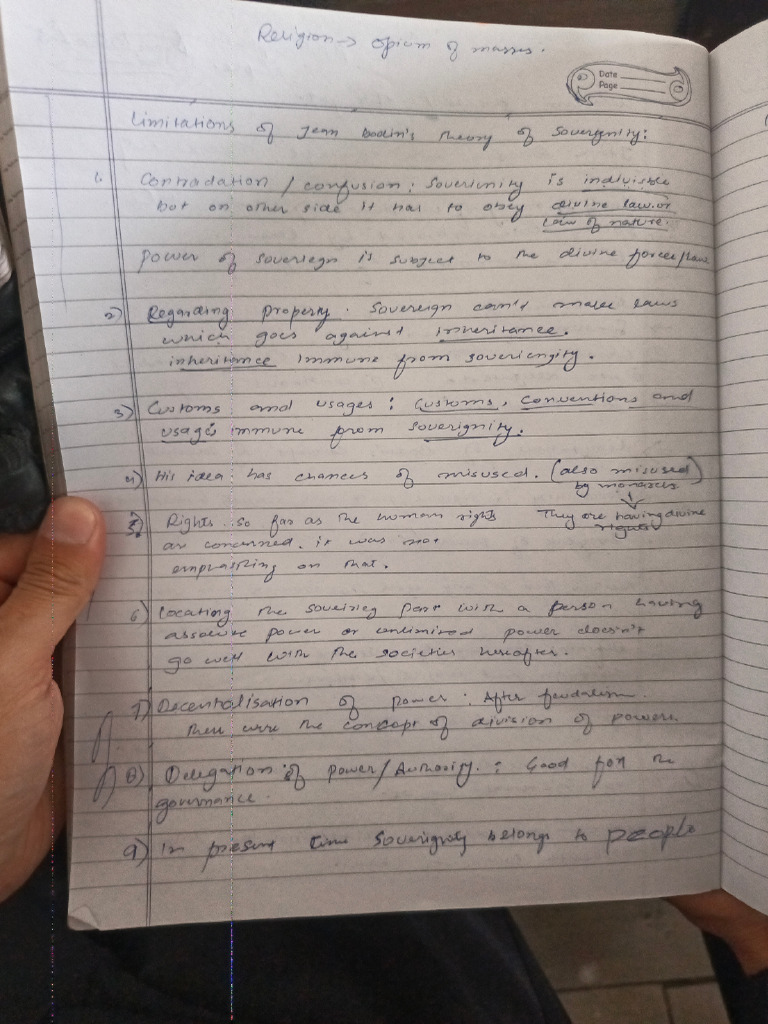 Religion → opium of masses.
Date
Page
Limitations of Jean Bodin's Theory of Soverignity:
1. Contradation / confusion : Soverinity is indivisible
but on other side it has to obey divine law or
law of nature.
Power of soveriegn is subject to the divine forces/law
2) Regarding property. Sovereign can't make laws
which goes against inheritance.
inheritance immune from soveriengity.
3) Customs and usages : Customs, Conventions and
usages immune from soverignity.
4) His idea has chances of misused. (also misused)
by monarchs
↓
5) Rights. So far as the human rights They are having divine
ar concerned. it was not rights
emphasizing on that.
6) Locating the soveirieg with a person having
absolute power or unlimited power doesn't
go well with the societies hereafter.
7) Decentralisation of power : After feudalism.
there were the concept of division of powers.
8) Delegation of power/Authority. : Good for the
governance.
9) In present time Soverignty belongs to people